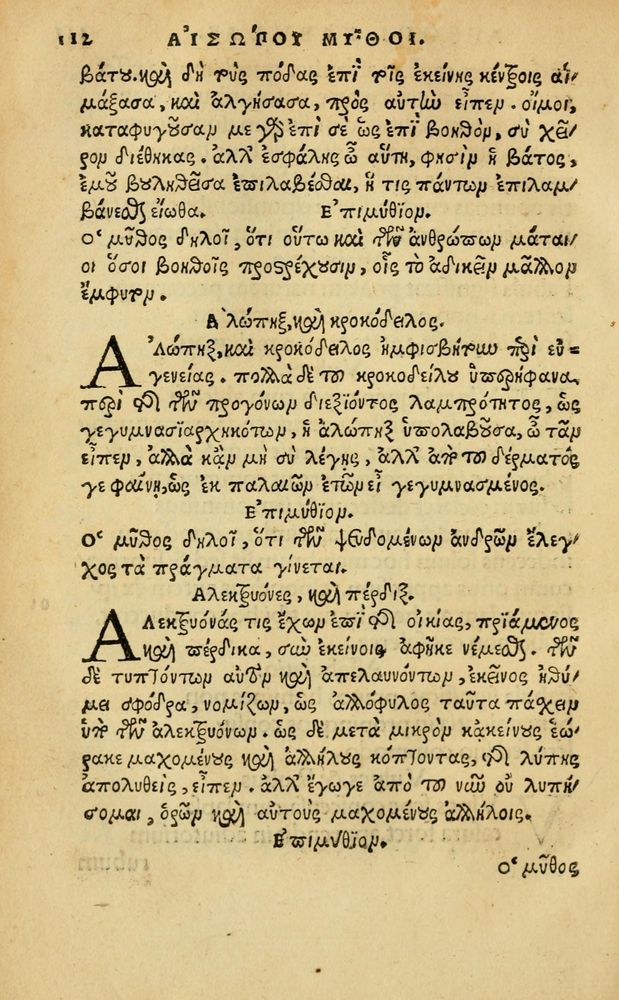 112 ΑἸΣΏΠΟΥ ΜΥ͂ΘΟΙ.
βάτου. καὶ δὴ τοὺς πόδας ἐπὶ τοῖς ἐκείνης κέντροις αἱ/
μάξασα, καὶ ἀλγήσασα, πρὸς αὐτὴν εἶπεν. οἴμοι,
καταφυγοῦσαν με γὰρ ἐπὶ σὲ ὡς ἐπὶ βοηθὸν, σὺ χεῖ/
ρον διέθηκας. ἀλλ' ἐσφάλης ὦ αὕτη, φησὶν ἡ βάτος,
ἐμοῦ βουληθεῖσα ἐπιλαβέσθαι, ἥ τις πάντων ἐπιλαμ/
βάνεσθαι εἴωθα. Ἐπιμύθιον.
Ὁ μῦθος δηλοῖ, ὅτι οὕτω καὶ τῶν ἀνθρώπων μάται/
οι ὅσοι βοηθοῖς προστρέχουσιν, οἷς τὸ ἀδικεῖν μᾶλλον
ἔμφυτον.
Ἀλώπηξ, καὶ κροκόδειλος.
Ἀλώπηξ, καὶ κροκόδειλος ἠμφισβήτουν περὶ εὐ=
γενείας. πολλὰ δὲ τοῦ κροκοδείλου ὑπερήφανα,
περὶ τῆς τῶν προγόνων διεξιόντος λαμπρότητος, ὡς
γεγυμνασιαρχηκότων, ἡ ἀλώπηξ ὑπολαβοῦσα, ὦ τᾶν
εἶπεν, ἀλλὰ κἂν μὴ σὺ λέγῃς, ἀλλ' ἀπὸ τοῦ δέρματός
γε φαίνῃ, ὡς ἐκ παλαιῶν ἐτῶν εἶ γεγυμνασμένος.
Ἐπιμύθιον.
Ὁ μῦθος δηλοῖ, ὅτι τῶν ψευδομένων ἀνδρῶν ἔλεγ/
χος τὰ πράγματα γίνεται.
Ἀλεκτρυόνες, καὶ πέρδιξ.
Ἀλεκτρυόνάς τις ἔχων ἐπὶ τῆς οἰκίας, πριάμενος
καὶ πέρδικα, σὺν ἐκείνοις ἀφῆκε νέμεσθαι. τῶν
δὲ τυπτόντων αὐτὸν καὶ ἀπελαυνόντων, ἐκεῖνος ἠθύ/
μει σφόδρα, νομίζων, ὡς ἀλλόφυλος ταῦτα πάσχειν
ὑπὸ τῶν ἀλεκτρυόνων. ὡς δὲ μετὰ μικρὸν κἀκείνους ἑώ/
ρακε μαχομένους καὶ ἀλλήλους κόπτοντας, τῆς λύπης
ἀπολυθεὶς, εἶπεν. ἀλλ' ἔγωγε ἀπὸ τοῦ νῦν οὐ λυπή/
σομαι, ὁρῶν καὶ αὐτοὺς μαχομένους ἀλλήλοις.
Ἐπιμύθιον.
Ὁ μῦθος